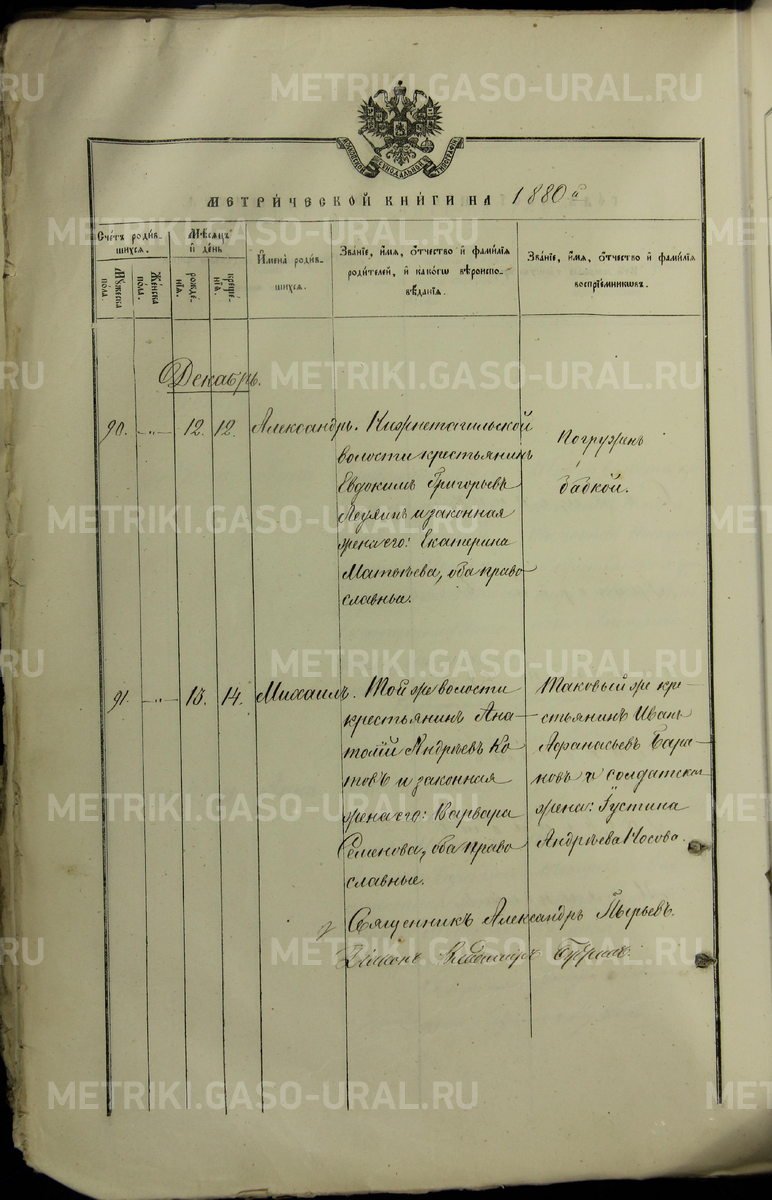 METRIKI.GASO-URAL.RU
МОСКОВСКОЙ СѴНОДАЛЬНОЙ ТИПОГРАФІИ
МЕТРИ́ЧЕСКОЙ КНИ́ГИ НА 1880й
Сче́тъ роди́в-
шихся.
Му́жеска
пола.
Же́нска
пола.
Мѣ́сяцъ
и҆ де́нь
рожде́-
нїѧ.
креще́-
нїѧ.
И҆мена̀ роди́в-
шихся.
Зва́нїе, и҆́мя, ѻ҆́тчество и҆ фами́лїя
роди́телей, и҆ како́гѡ вѣроиспо-
вѣ́данїя.
Зва́нїе, и҆́мя, ѻ҆́тчество и҆ фами́лїя
воспрїе́мникѡвъ.
Декабрь.
90. —„— 12. 12. Александръ. Нижнетагильской
волости крестьянинъ
Евдокимъ Григорьевъ
и законная
жена его: Екатерина
Матвѣева, оба право-
славные.
Погруженъ
бабкой.
91. —„— 13. 14. Михаилъ. Той же волости
крестьянинъ Ана-
толій Андреевъ Ко-
товъ и законная
жена его: Варвара
Семенова, оба право-
славные.
Таковый же кре-
стьянинъ Иванъ
Афанасьевъ Бара-
новъ и солдатская
жена: Іустина
Андреѣва Носова.
Священникъ Александръ
Діаконъ